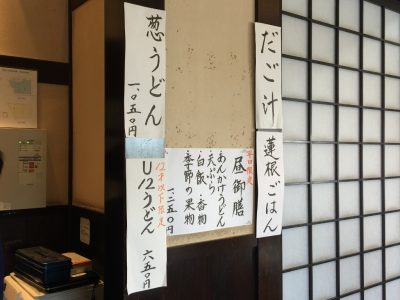 だご汁
蓮根ごはん
平日限定
昼御膳
あんかけうどん
・天ぷら
・白飯・香物
・季節の果物
一、二五〇円
葱うどん
一、〇五〇円
12才以下限定
U12うどん
六五〇円